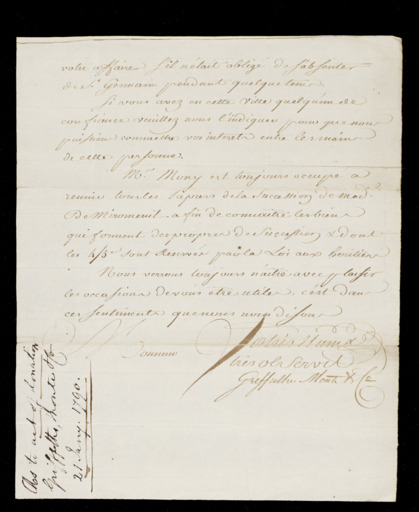 votre affaire s'il n'était obligé de s'absenter
de St. Germain pendant quelque tems.
Si vous avez en cette ville quelqu'un de
confiance veuillez nous l'indiquer pour que nous
puissions remettre vos interets entre les mains
de cette personne.
Mr. Mony est toujours occupé a
reunir tous les papiers de la Succession de Mad.
De Miromenil afin de connaitre les biens
qui forment des propres de Succession & dont
les 4/5e. sont Reservés par la Loi aux héritiers
Nous verrons toujours naitre avec plaisir
les occasions de vous être utiles c'est dans
ces sentiments que nous avons
Donneur
très ob Servit
Greffulhe Montz & Ce
As to act of donation
Greffulhe, Montz & Co
21 Jany. 1790.